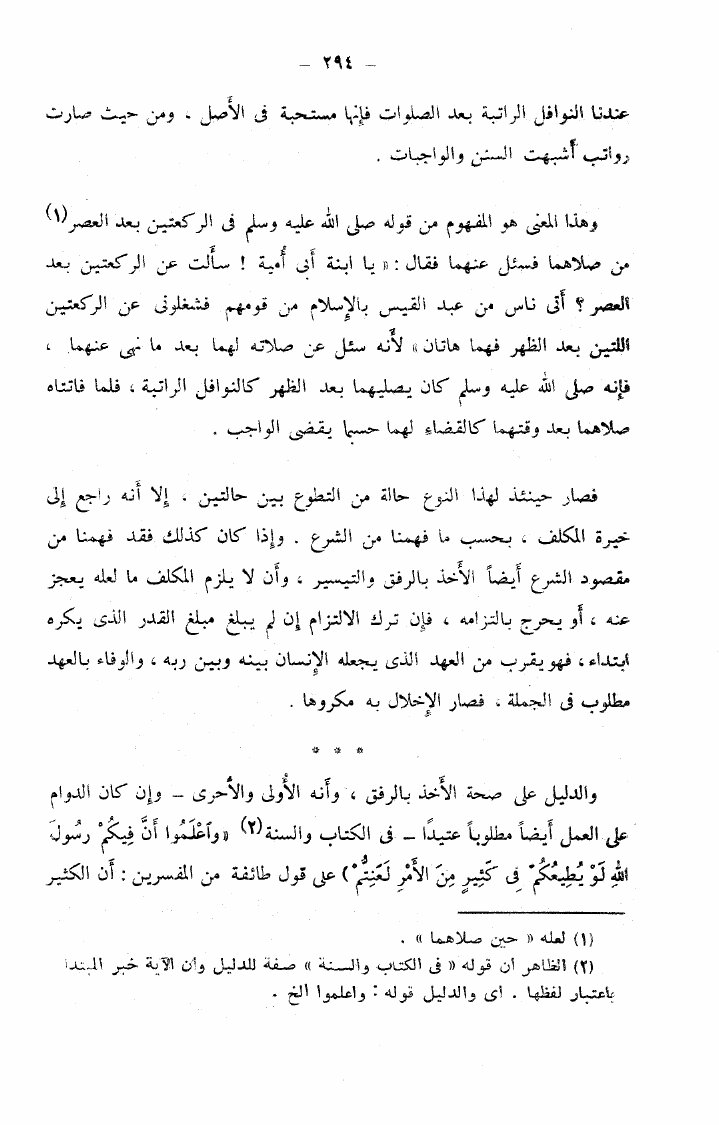 – ٢٩٤ –
عندنا النوافل الراتبة بعد الصلوات فإنها مستحبة فى الأصل ، ومن حيث صارت
رواتب أشبهت السنن والواجبات .
وهذا المعنى هو المفهوم من قوله صلى الله عليه وسلم فى الركعتين بعد العصر(١)
من صلاهما فسئل عنهما فقال : « يا ابنة أبى أمية ! سألت عن الركعتين بعد
العصر ؟ أتى ناس من عبد القيس بالإسلام من قومهم فشغلونى عن الركعتين
اللتين بعد الظهر فهما هاتان » لأنه سئل عن صلاته لهما بعد ما نهى عنهما ،
فإنه صلى الله عليه وسلم كان يصليهما بعد الظهر كالنوافل الراتبة ، فلما فاتتاه
صلاهما بعد وقتهما كالقضاء لهما حسبما يقضى الواجب .
فصار حينئذ لهذا النوع حالة من التطوع بين حالتين ، إلا أنه راجع إلى
خيرة المكلف ، بحسب ما فهمنا من الشرع . وإذا كان كذلك فقد فهمنا من
مقصود الشرع أيضاً الأخذ بالرفق والتيسير ، وأن لا يلزم المكلف ما لعله يعجز
عنه ، أو يحرج بالتزامه ، فإن ترك الالتزام إن لم يبلغ مبلغ القدر الذى يكره
ابتداء ، فهو يقرب من العهد الذى يجعله الإنسان بينه وبين ربه ، والوفاء بالعهد
مطلوب فى الجملة ، فصار الإخلال به مكروها .
* * *
والدليل على صحة الأخذ بالرفق ، وأنه الأولى والأحرى – وإن كان الدوام
على العمل أيضاً مطلوباً عتيدًا – فى الكتاب والسنة(٢) «وَٱعْلَمُوا أَنَّ فِيكُمْ رَسُولَ
اللهِ لَوْ يُطِيعُكُمْ فِى كَثِيرٍ مِنَ الأَمْرِ لَعَنِتُّمْ) على قول طائفة من المفسرين : أن الكثير
(١) لعله « حين صلاهما » .
(٢) الظاهر ان قوله « فى الكتاب والسنة » صفة للدليل وأن الآية خبر المبتدا
باعتبار لفظها . اى والدليل قوله : واعلموا الخ .